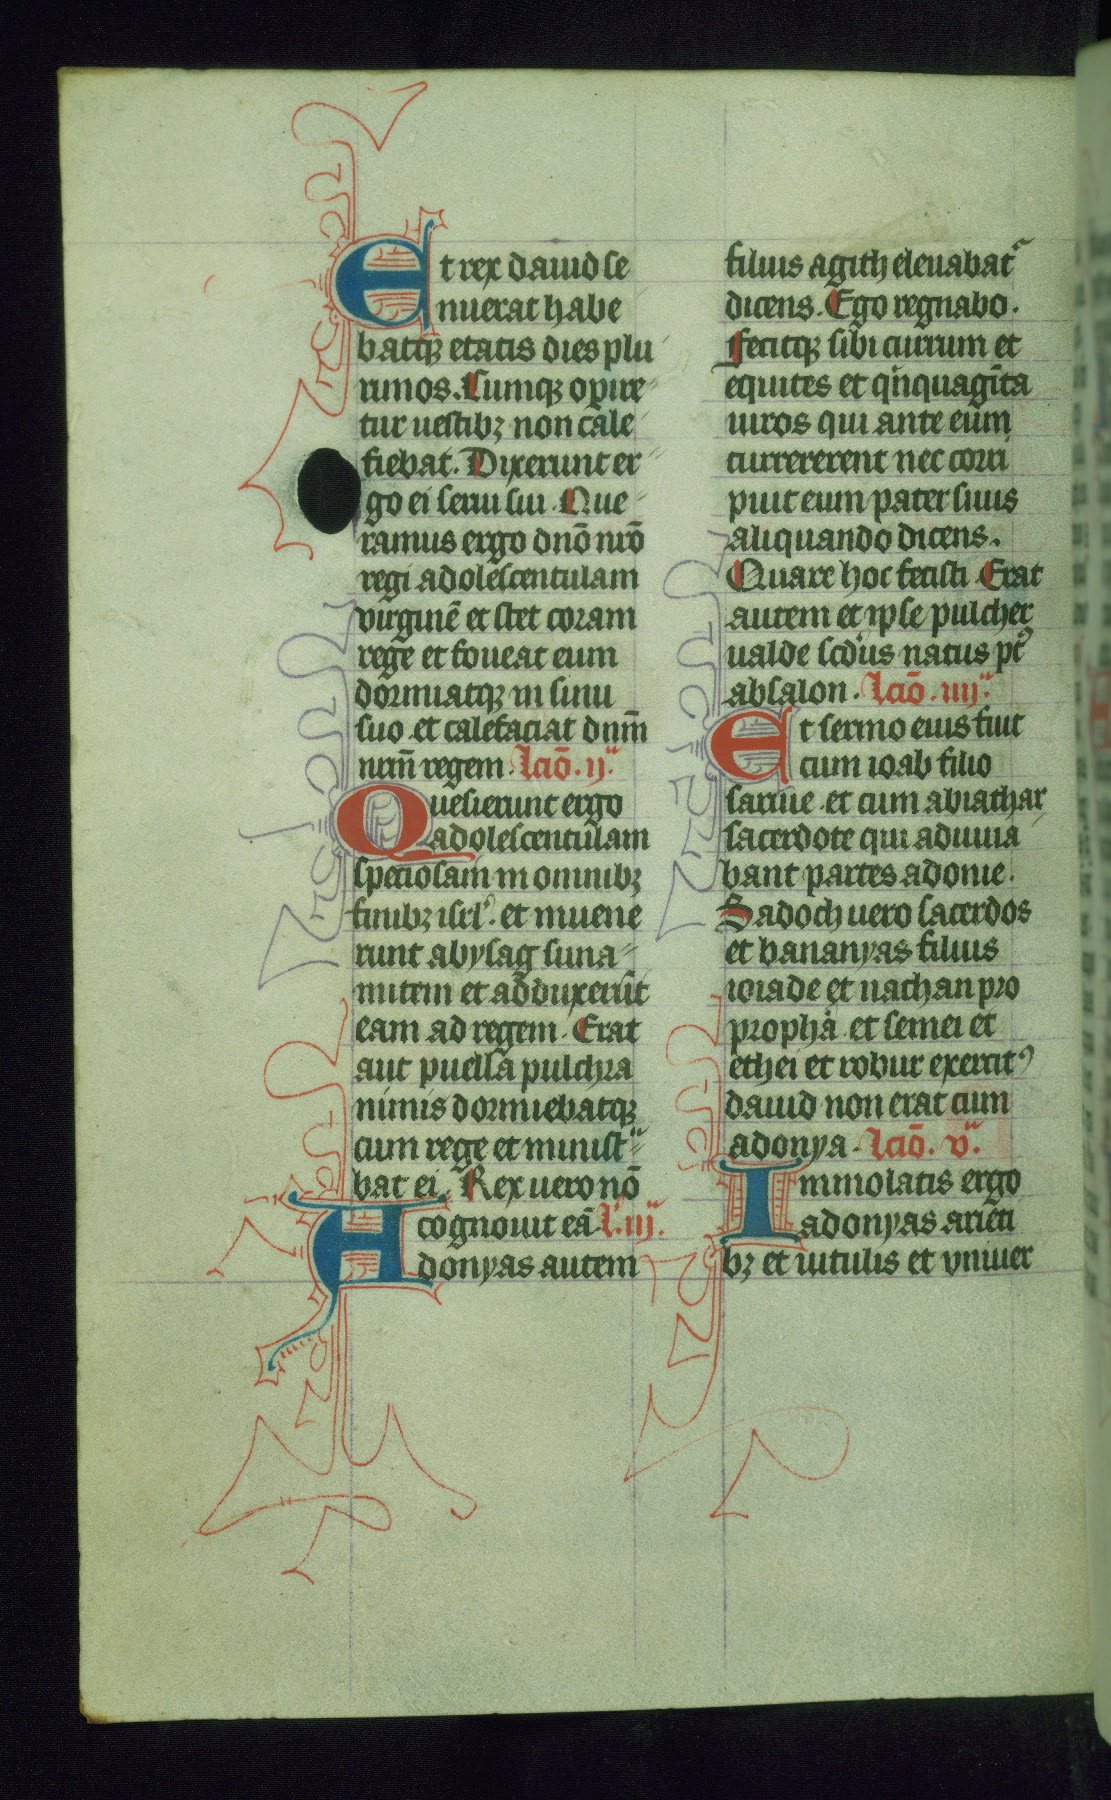 Et rex dauid se
nuerat habe
batqꝫ etatis dies plu
rimos. Cumqꝫ opire
tur uestibꝫ non cale
fiebat. Dixerunt er
go ei serui sui. Que
ramus ergo dnō nrō
regi adolescentulam
virginē et stet coram
rege et foueat eum
dormiatqꝫ in sinu
suo et calefaciat dnm̄
nrm̄ regem. lctiō. ij.ͣ
Quesierunt ergo
adolescentulam
speciosam in omnibꝫ
finibꝫ isrl̓. et inuene
runt abysag suna
mitem et adduxerūt
eam ad regem. Erat
aut puella pulchra
nimis dormiebatqꝫ
cum rege et ministͣ
bat ei. Rex uero nō
cognouit eā. l̓. iij.ͣ
Adonyas autem
filius agith eleuabatͬ
dicens. Ego regnabo.
Fecitqꝫ sibi currum et
equites et qͥnquagīta
uiros qui ante eum
currererent nec corri
puit eum pater suus
aliquando dicens.
Quare hoc fecisti. Erat
autem et ipse pulcher
ualde scdͥus natus pꝰt
absalon. lctiō. iiij.ͣ
Et sermo eius fuit
cum ioab filio
saruie et cum abiathar
sacerdote qui adiuua
bant partes adonie.
Sadoch uero sacerdos
et bananyas filius
ioiade et nathan pro
prophā et semei et
ethei et robur exercitꝰ
dauid non erat cum
adonya. lctiō. v.ͣ
Immolatis ergo
adonyas arieti
bꝫ et uitulis et vniuer